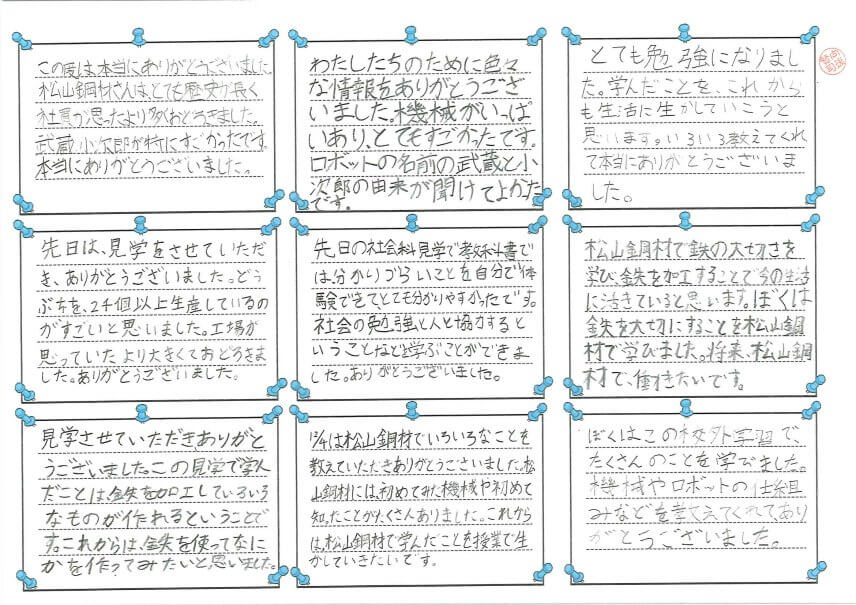 この度は、本当にありがとうございました。
松山鋼材さんは、とても歴史が長く
社員が思ったより多くおどろきました。
武蔵、小次郎が特にすごかったです。
本当にありがとうございました。
わたしたちのために色々
な情報をありがとうござ
いました。機械がいっぱ
いあり、とてもすごかったです。
ロボットの名前の武蔵と小
次郎の由来が聞けてよかった
です。
とても勉強になりまし
た。学んだことを、これから
も生活に生かしていこうと
思います。いろいろ教えてくれ
て本当にありがとうございま
した。
先日は、見学をさせていただ
き、ありがとうございました。どう
ぶちを、2千個以上生産しているの
がすごいと思いました。工場が
思っていたより大きくておどろきま
した。ありがとうございました。
先日の社会科見学で教科書で
は、分かりづらいことを自分で体
験できてとても分かりやすかったです。
社会の勉強と人と協力すると
いうことなどを学ぶことができま
した。ありがとうございました。
松山鋼材で鉄の大切さを
学び、鉄を加工することで今の生活
に活きていると思います。ぼくは
鉄を大切にすることを松山鋼
材で学びました。将来、松山鋼
材で、働きたいです。
見学させていただきありがと
うございました。この見学で学ん
だことは、鉄を加工していろいろ
なものが作れるということで
す。これからは、鉄を使ってなに
かを作ってみたいと思いました。
は松山鋼材でいろいろなことを
教えていただきありがとうございました。松
山鋼材には、初めてみた機械や初めて
知ったことがたくさんありました。これから
は、松山鋼材で学んだことを授業で生
かしていきたいです。
ぼくはこの校外学習で、
たくさんのことを学びました。
機械やロボットの仕組
みなどを教えてくれて、あり
がとうございました。